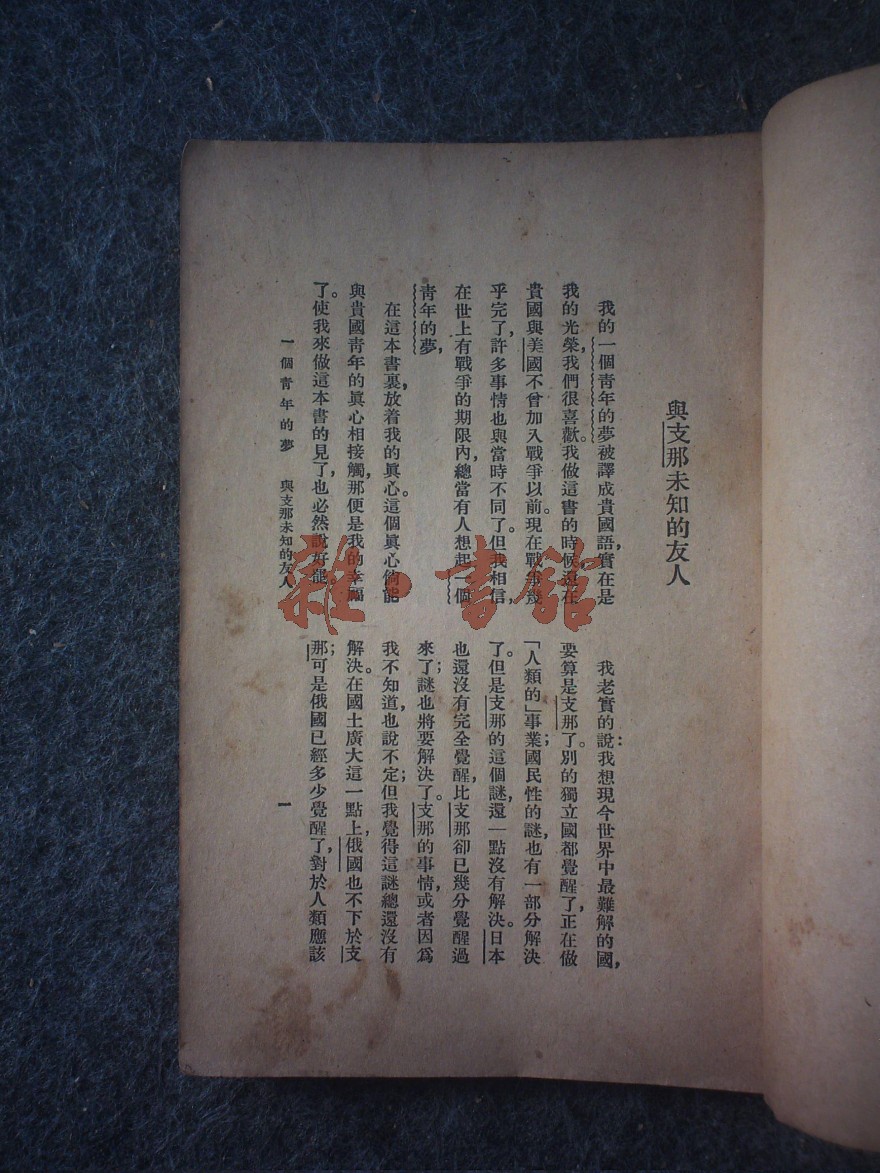 與支那未知的友人
我的一個青年的夢被譯成貴國語,實在是
我的光榮,我們很喜歡。我做這書的時候,還在
貴國與美國不曾加入戰爭以前。現在戰爭幾
乎完了,許多事情也與當時不同了。但我相信,
在世上有戰爭的期限內,總當有人想起一個
青年的夢,
在這本書裏,放着我的眞心。這個眞心倘能
與貴國青年的眞心相接觸,那便是我的幸福
了。使我來做這本書的見了,也必然說好罷。
我老實的說:我想現今世界中最難解的國,
要算是支那了。別的獨立國都覺醒了,正在做
「人類的」事業;國民性的謎,也有一部分解決
了。但是支那的這個謎,還一點沒有解決。日本
也還沒有完全覺醒,比支那卻已幾分覺醒過
來了;謎也將要解決了。支那的事情,或者因爲
我不知道,也說不定;但我覺得這謎總還沒有
解決。在國土廣大這一點上,俄國也不下於支
那;可是俄國已經多少覺醒了,對於人類應該
一個青年的夢 與支那未知的友人
一
雜·書館